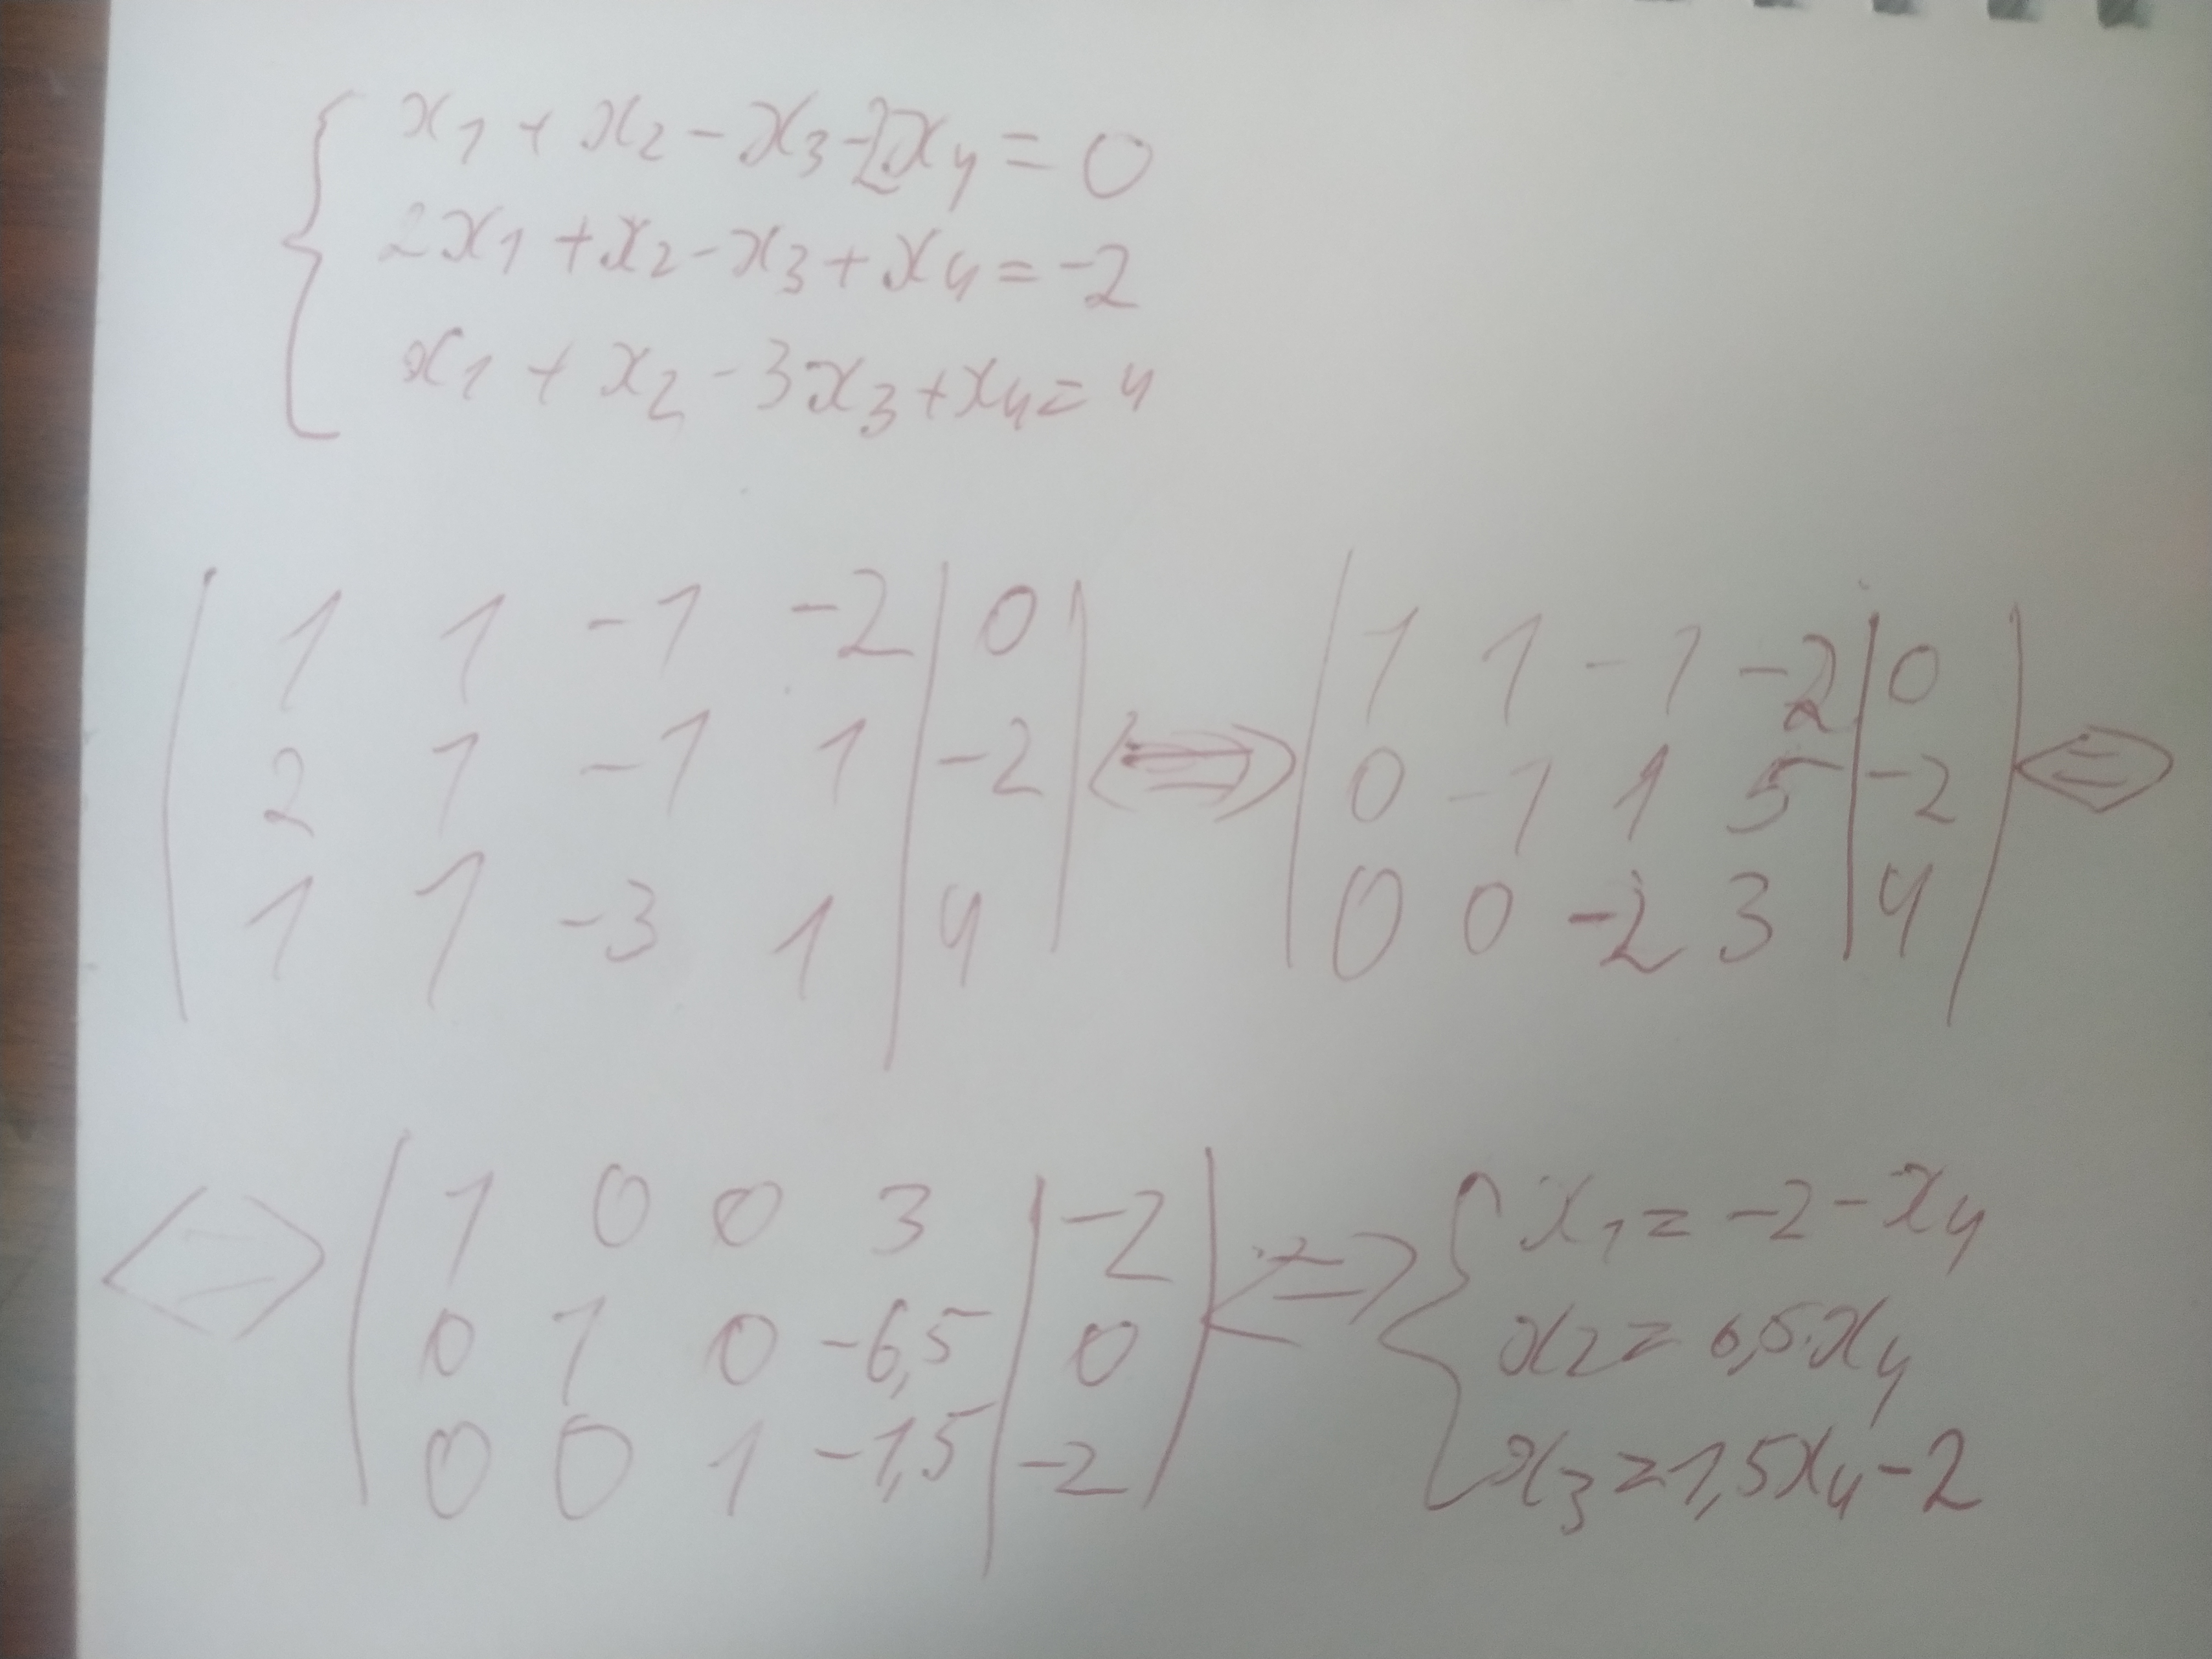 x1 + x2 - x3 - 2x4 = 0
2x1 + x2 - x3 + x4 = -2
x1 + x2 - 3x3 + x4 = 4
1 1 -1 -2 | 0
2 1 -1 1 | -2
1 1 -3 1 | 4
⇔
1 1 -1 -2 | 0
0 -1 1 5 | -2
0 0 -2 3 | 4
⇔
⇔
1 0 0 3 | -2
0 1 0 -6,5 | 0
0 0 1 -1,5 | -2
⇔
x1 = -2 - x4
x2 = 6,5x4
x3 = 1,5x4 - 2